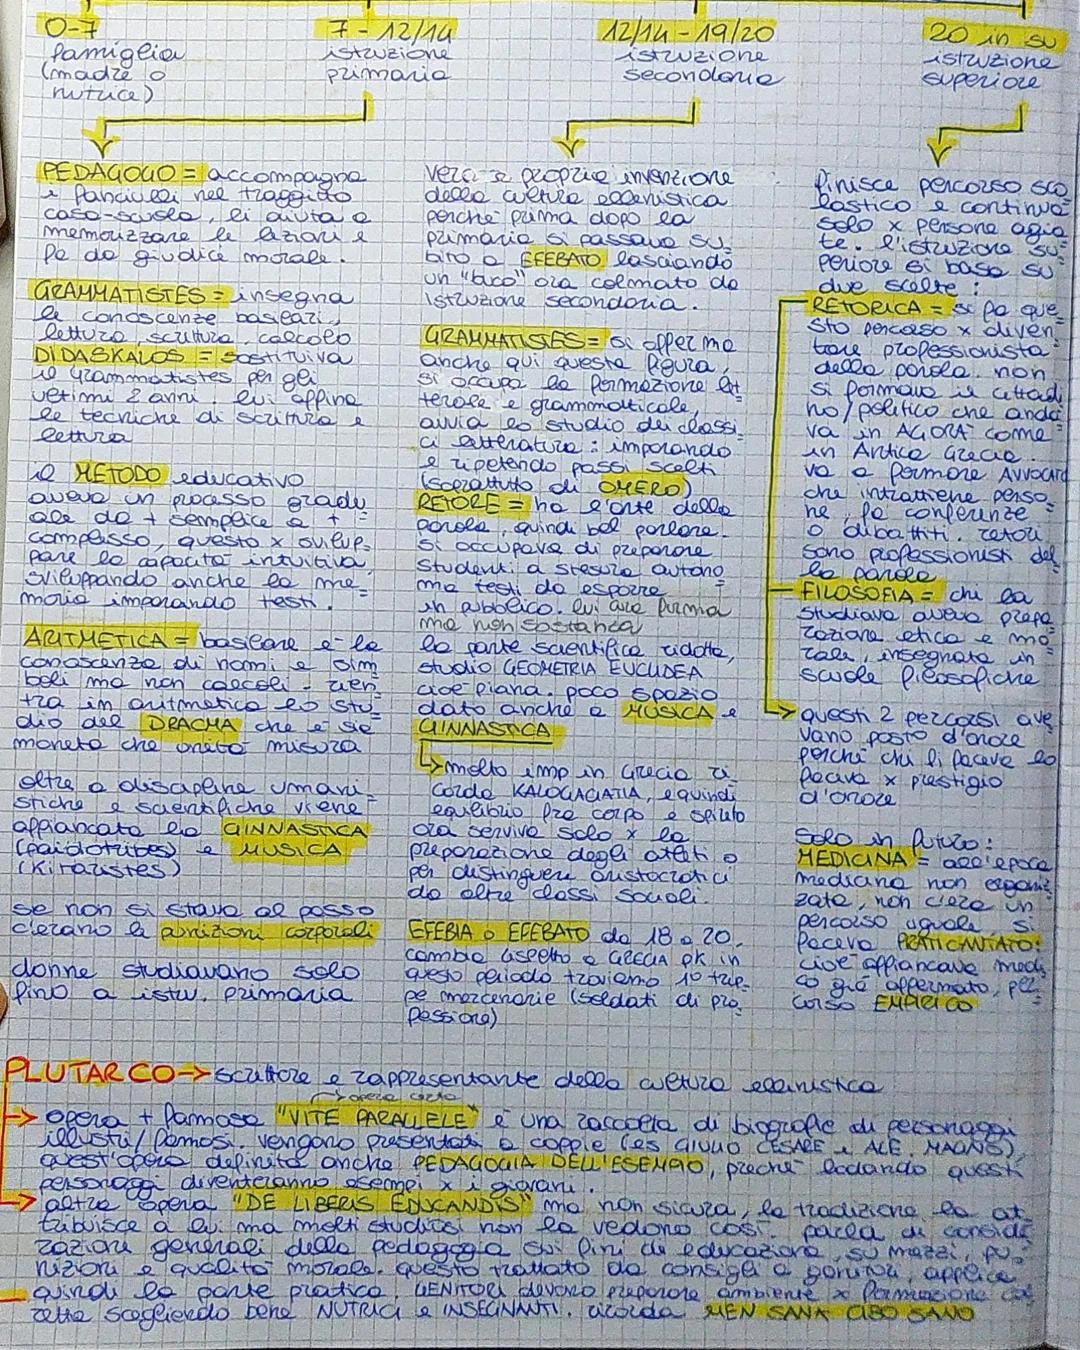 0-7
famiglia
(madre o
nutrice)
7 - 12/14
istruzione
primaria
12/14 - 19/20
istruzione
secondaria
20 in su
istruzione
superiore
PEDAGOGO = accompagna
i fanciulli nel tragitto
casa-scuola, li aiuta a
memorizzare le lezioni e
fa da giudice morale.
GRAMMATISTES = insegna
le conoscenze basilari,
lettura, scrittura, calcolo
DIDASKALOS = sostituiva
il grammatistes per gli
ultimi 2 anni. lui affina
le tecniche di scrittura e
lettura
il METODO educativo
aveva un processo gradu
ale da + semplice a +
complesso, questo x svilup-
pare la capacità intuitiva,
sviluppando anche la me
moria imparando testi.
ARITMETICA = basilare è la
conoscenza di nomi e sim
boli ma non calcoli - rien-
tra in aritmetica lo stu-
dio del DRACMA che è sé
moneta che unità misura
oltre a discipline umani-
stiche e scientifiche viene
affiancata la GINNASTICA
(paidotribes) e MUSICA
(Kitaristes)
se non si stava al passo
c'erano le punizioni corporali
donne studiavano solo
fino a istru. primaria
vera e propria invenzione
della cultura ellenistica
perché prima dopo la
primaria si passava su-
bito a EFEBATO lasciando
un "buco" ora colmato da
istruzione secondaria.
GRAMMATISTES = si afferma
anche qui questa figura,
si occupa la formazione let
terale e grammatticale,
avvia lo studio dei classi-
ci letteratura: imparando
e ripetendo passi scelti
(soprattutto di OMERO)
RETORE = ha l'arte della
parola, quindi bel parlare.
si occupava di preparare
studenti a stesura autono
ma testi da esporre
in pubblico. lui dice forma
ma non sostanza
la parte scientifica ridotta,
studio GEOMETRIA EUCLIDEA
cioè piana. poco spazio
dato anche a MUSICA e
GINNASTICA
molto imp in Grecia ri
corda KALOGAGATIA, e quindi
equilibrio fra corpo e spirito
ora serviva solo x la
preparazione degli atleti o
per distinguere aristocratici
da altre classi sociali.
EFEBIA o EFEBATO da 18 a 20.
cambia aspetto a GRECIA pk in
questo periodo troviamo 1° trup-
pe mercenarie (soldati di pro-
fessione)
finisce percorso sco
lastico e continua
solo x persone agia
te. l'istruzione su-
periore si basa su
due scelte:
RETORICA = si fa que-
sto percorso x diven
tare professionista
della parola. non
si formava il cittadi
no/politico che anda
va in AGORÀ come
in Antica Grecia.
va a formare AVVOCATO
che intrattiene perso
ne, fa conferenze
o dibattiti. retori
sono professionisti del
la parola
FILOSOFIA = chi la
studiava aveva prepa
razione etica e mo-
rale, insegnata in
scuole filosofiche
questi 2 percorsi ave
vano posto d'onore
perché chi li faceva lo
faceva x prestigio
d'onore
solo in futuro:
MEDICINA = all'epoca
medicina non organiz
zata, non c'era un
percorso uguale, si
faceva PRATICANTATO:
cioè affiancava medi-
co già affermato, per-
corso EMPIRICO
PLUTARCO → scrittore e rappresentante della cultura ellenistica
→ opera certa
→ opera + famosa "VITE PARALLELE" è una raccolta di biografie di personaggi
illustri/famosi. vengono presentati a coppie (es GIULIO CESARE e ALE. MAGNO),
quest'opera definita anche PEDAGOGIA DELL'ESEMPIO, preché lodando questi
personaggi diventeranno esempi x i giovani.
→ altra opera "DE LIBERIS EDUCANDIS" ma non sicura, la tradizione la at
tribuisce a lui ma molti studiosi non la vedono così. parla di conside
razioni generali della pedagogia sui fini de educazione, su mezzi, pu-
nizioni e qualità morale. questo trattato da consigli a genitori, applica
quindi la parte pratica. GENITORI devono preparare ambiente x formazione cor
retta scegliendo bene NUTRICI e INSEGNANTI. ricorda MEN SANA CIBO SANO